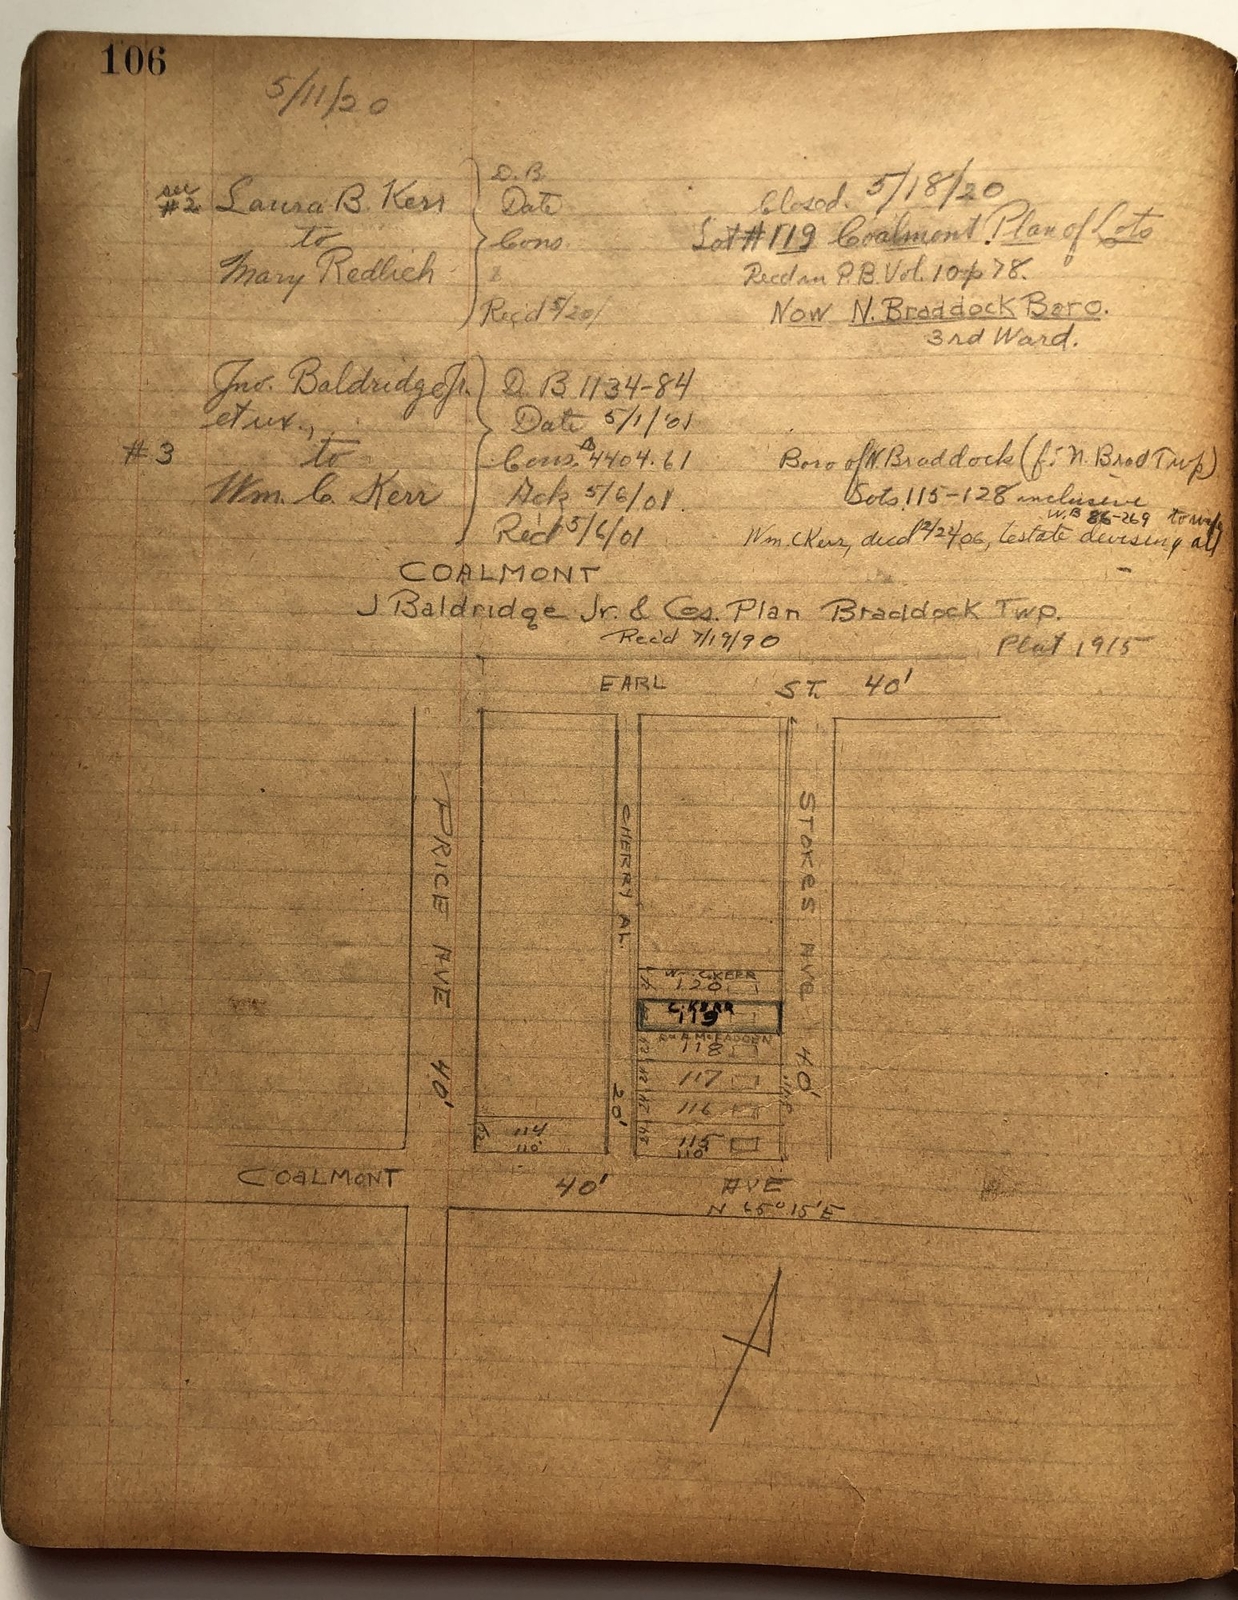 106
5/11/20
see
#2
Laura B. Kerr
to
Mary Redlich
D.B.
Date
Cons.
Rec'd 5/20/
Closed. 5/18/20
Lot #119 Coalmont Plan of Lots
Recd in P.B. Vol. 10 p 78.
Now N. Braddock Boro.
3rd Ward.
Jno. Baldridge Jr.
et ux.,
#3
to
Wm. C. Kerr
D.B 1134-84
Date 5/1/'01
Cons. 4404.61
Ack 5/6/01.
Rec'd 5/6/01
Boro of N. Braddock (f. N. Brad Twp)
Lots 115-128 inclusive
W.B 86-269 to wife
Wm C Kerr, decd 12/24/06, testate devising all
COALMONT
J Baldridge Jr. & Cos. Plan Braddock Twp.
Rec'd 7/19/90
Plat 1915
EARL ST. 40'
PRICE AVE 40'
CHERRY AL. 20'
STOKES AVE 40'
Wm C. KERR
120
C. KERR
119
McFADDEN
118
117
116
115
110'
114
110'
COALMONT 40' AVE
N 65° 15' E